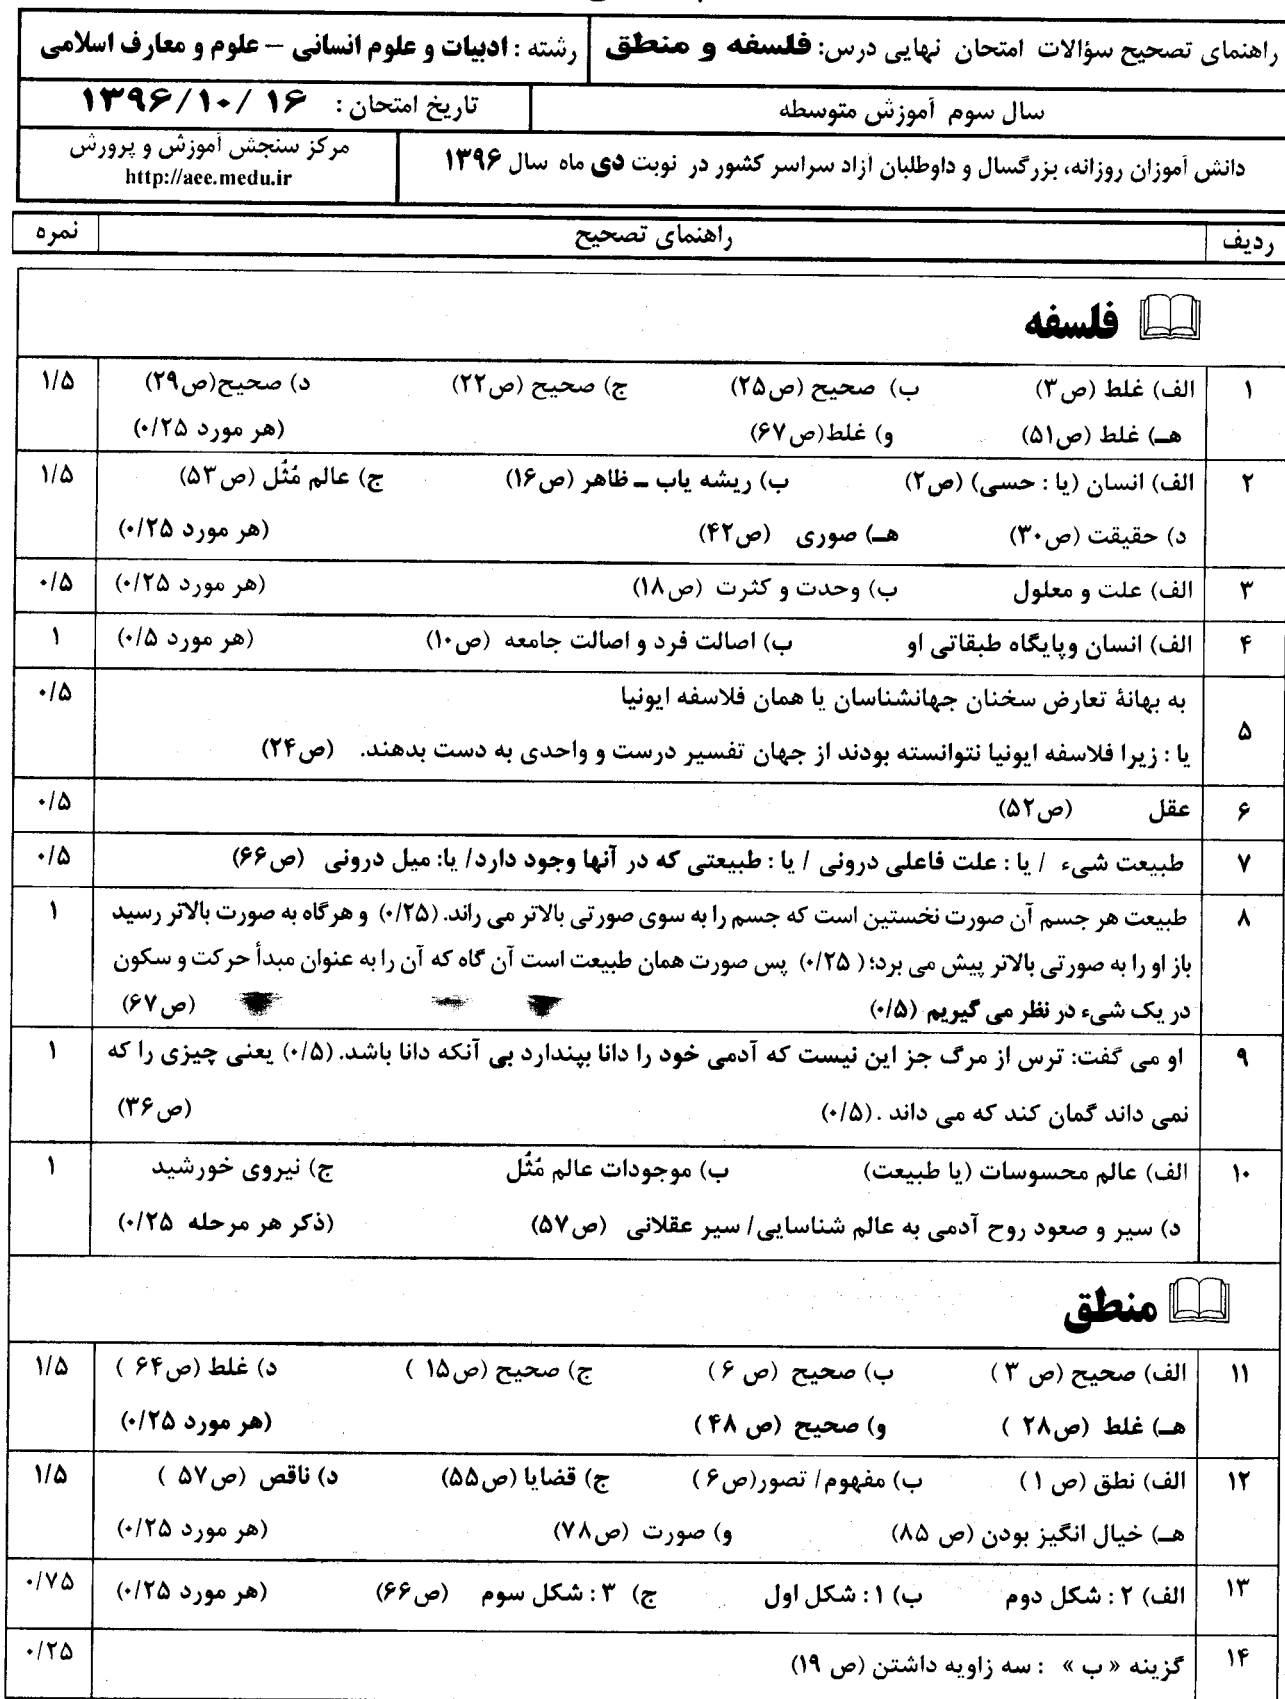 راهنمای تصحیح سؤالات امتحان نهایی درس: فلسفه و منطق
رشته : ادبیات و علوم انسانی – علوم و معارف اسلامی
سال سوم آموزش متوسطه
تاریخ امتحان : ۱۳۹۶/۱۰/ ۱۶
دانش آموزان روزانه، بزرگسال و داوطلبان آزاد سراسر کشور در نوبت دی ماه سال ۱۳۹۶
مرکز سنجش آموزش و پرورش
http://aee.medu.ir
ردیف راهنمای تصحیح نمره
فلسفه
۱ الف) غلط (ص۳) ب) صحیح (ص۲۵) ج) صحیح (ص۲۲) د) صحیح(ص۲۹) ۱/۵
هـ) غلط (ص۵۱) و) غلط(ص۶۷) (هر مورد ۰/۲۵)
۲ الف) انسان (یا : حسی) (ص۲) ب) ریشه یاب ـ ظاهر (ص۱۶) ج) عالم مُثُل (ص۵۳) ۱/۵
د) حقیقت (ص۳۰) هـ) صوری (ص۴۲) (هر مورد ۰/۲۵)
۳ الف) علت و معلول ب) وحدت و کثرت (ص۱۸) (هر مورد ۰/۲۵) ۰/۵
۴ الف) انسان وپایگاه طبقاتی او ب) اصالت فرد و اصالت جامعه (ص۱۰) (هر مورد ۰/۵) ۱
۵ به بهانهٔ تعارض سخنان جهانشناسان یا همان فلاسفه ایونیا ۰/۵
یا : زیرا فلاسفه ایونیا نتوانسته بودند از جهان تفسیر درست و واحدی به دست بدهند. (ص۲۴)
۶ عقل (ص۵۲) ۰/۵
۷ طبیعت شیء / یا : علت فاعلی درونی / یا : طبیعتی که در آنها وجود دارد/ یا: میل درونی (ص۶۶) ۰/۵
۸ طبیعت هر جسم آن صورت نخستین است که جسم را به سوی صورتی بالاتر می راند. (۰/۲۵) و هرگاه به صورت بالاتر رسید ۱
باز او را به صورتی بالاتر پیش می برد؛( ۰/۲۵) پس صورت همان طبیعت است آن گاه که آن را به عنوان مبدأ حرکت و سکون
در یک شیء در نظر می گیریم (۰/۵) (ص۶۷)
۹ او می گفت: ترس از مرگ جز این نیست که آدمی خود را دانا بپندارد بی آنکه دانا باشد. (۰/۵) یعنی چیزی را که ۱
نمی داند گمان کند که می داند . (۰/۵) (ص۳۶)
۱۰ الف) عالم محسوسات (یا طبیعت) ب) موجودات عالم مُثُل ج) نیروی خورشید ۱
د) سیر و صعود روح آدمی به عالم شناسایی/ سیر عقلانی (ص۵۷) (ذکر هر مرحله ۰/۲۵)
منطق
۱۱ الف) صحیح (ص ۳ ) ب) صحیح (ص ۶ ) ج) صحیح (ص۱۵ ) د) غلط (ص۶۴ ) ۱/۵
هـ) غلط (ص۲۸ ) و) صحیح (ص ۴۸ ) (هر مورد ۰/۲۵)
۱۲ الف) نطق (ص ۱ ) ب) مفهوم/ تصور(ص۶ ) ج) قضایا (ص۵۵) د) ناقص (ص۵۷ ) ۱/۵
هـ) خیال انگیز بودن (ص ۸۵) و) صورت (ص۷۸) (هر مورد ۰/۲۵)
۱۳ الف) ۲ : شکل دوم ب) ۱ : شکل اول ج) ۳ : شکل سوم (ص۶۶) (هر مورد ۰/۲۵) ۰/۷۵
۱۴ گزینه « ب » : سه زاویه داشتن (ص ۱۹) ۰/۲۵